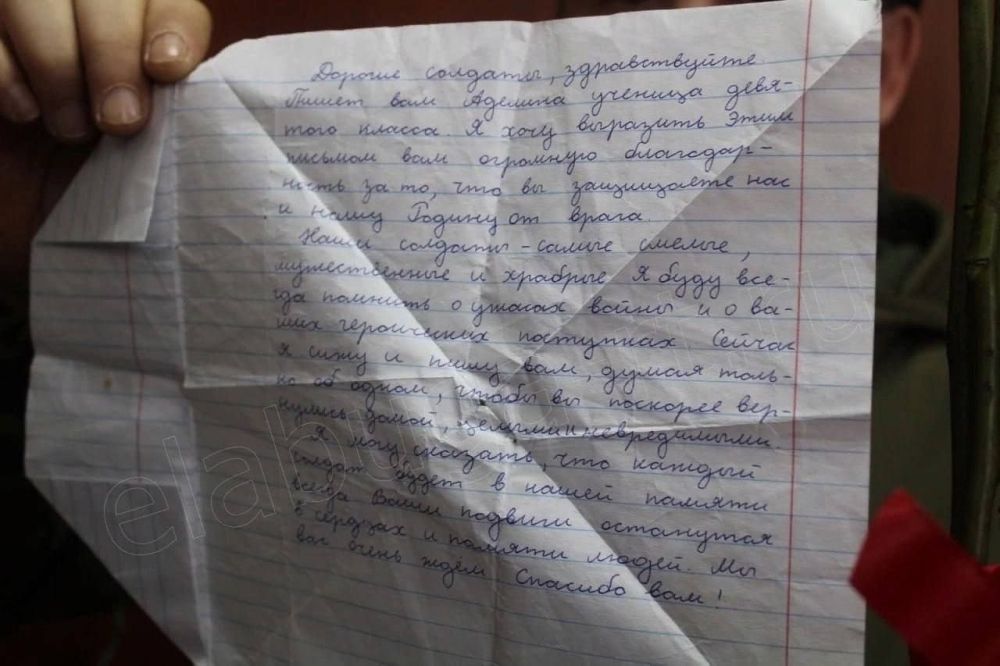 Дорогие солдаты, здравствуйте.
Пишет вам Аделина ученица девя-
того класса. Я хочу выразить Этим
письмом вам огромную благодар-
ность за то, что вы защищаете нас
и нашу Родину от врага.
Наши солдаты - самые смелые,
мужественные и храбрые Я буду все-
гда помнить о ужасах войны и о ва-
ших героических поступках Сейчас
я сижу и пишу вам, думая толь-
ко об одном, чтобы вы поскорее вер-
нулись домой, целыми и невредимыми.
Я могу сказать, что каждый
солдат будет в нашей памяти
всегда Ваши подвиги останутся
в сердцах и памяти людей. Мы
вас очень ждём Спасибо вам!